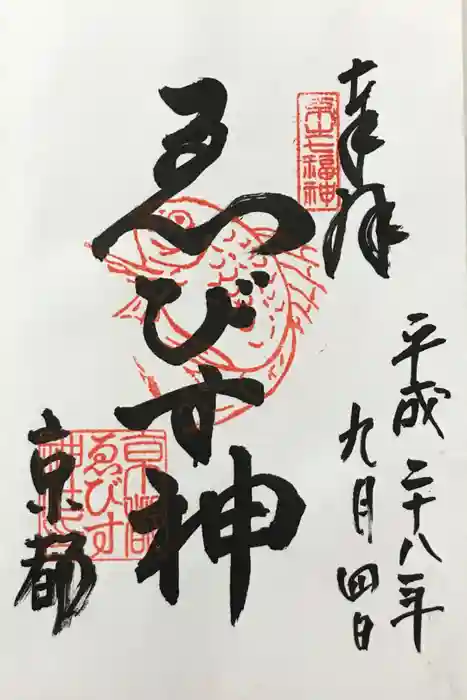 奉拝
都七福神
平成二十八年
九月四日
ゑびす神
京都
京都
ゑびす
神社